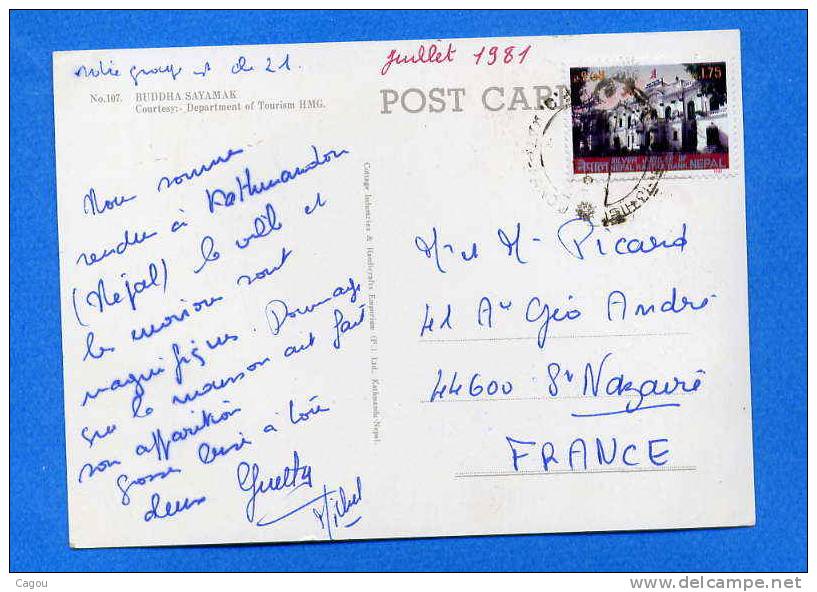 notre groupe est de 21.
juillet 1981
No.107. BUDDHA SAYAMAK
Courtesy:- Department of Tourism HMG.
POST CARD
1.75
नेपाल SILVER JUBILEE OF
NEPAL RASTRA BANK NEPAL
Nous sommes
rendu à Kathmandou
(Népal) la ville et
les environs sont
magnifiques. Dommage
que la mousson ait fait
son apparition
grosse bise à tous
deux Guetty
Michel
Cottage Industries & Handicrafts Emporium (P.) Ltd., Kathmandu-Nepal.
Mr et Me Picard
41 Av Géo André
44600 St Nazaire
FRANCE
Cagou
www.delcampe.net